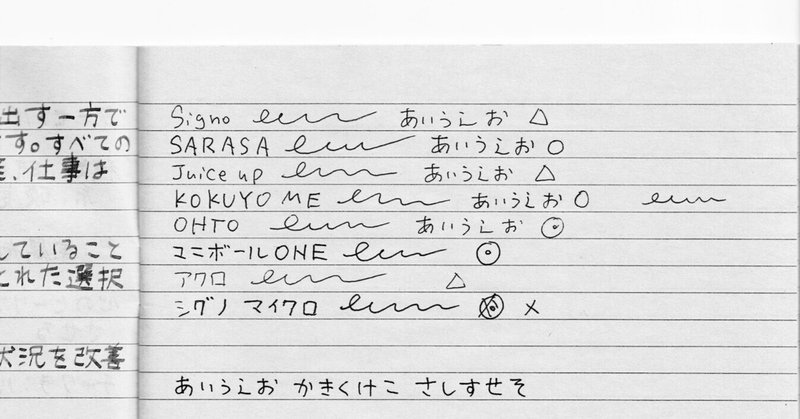 出す一方で
です。すべての
、仕事は
していること
とれた選択
状況を改善
Signo あいうえお △
SARASA あいうえお ○
Juice up あいうえお △
KOKUYO ME あいうえお ○
OHTO あいうえお ◎
ユニボールONE ◎
アクロ △
シグノ マイクロ ×
あいうえお かきくけこ さしすせそ